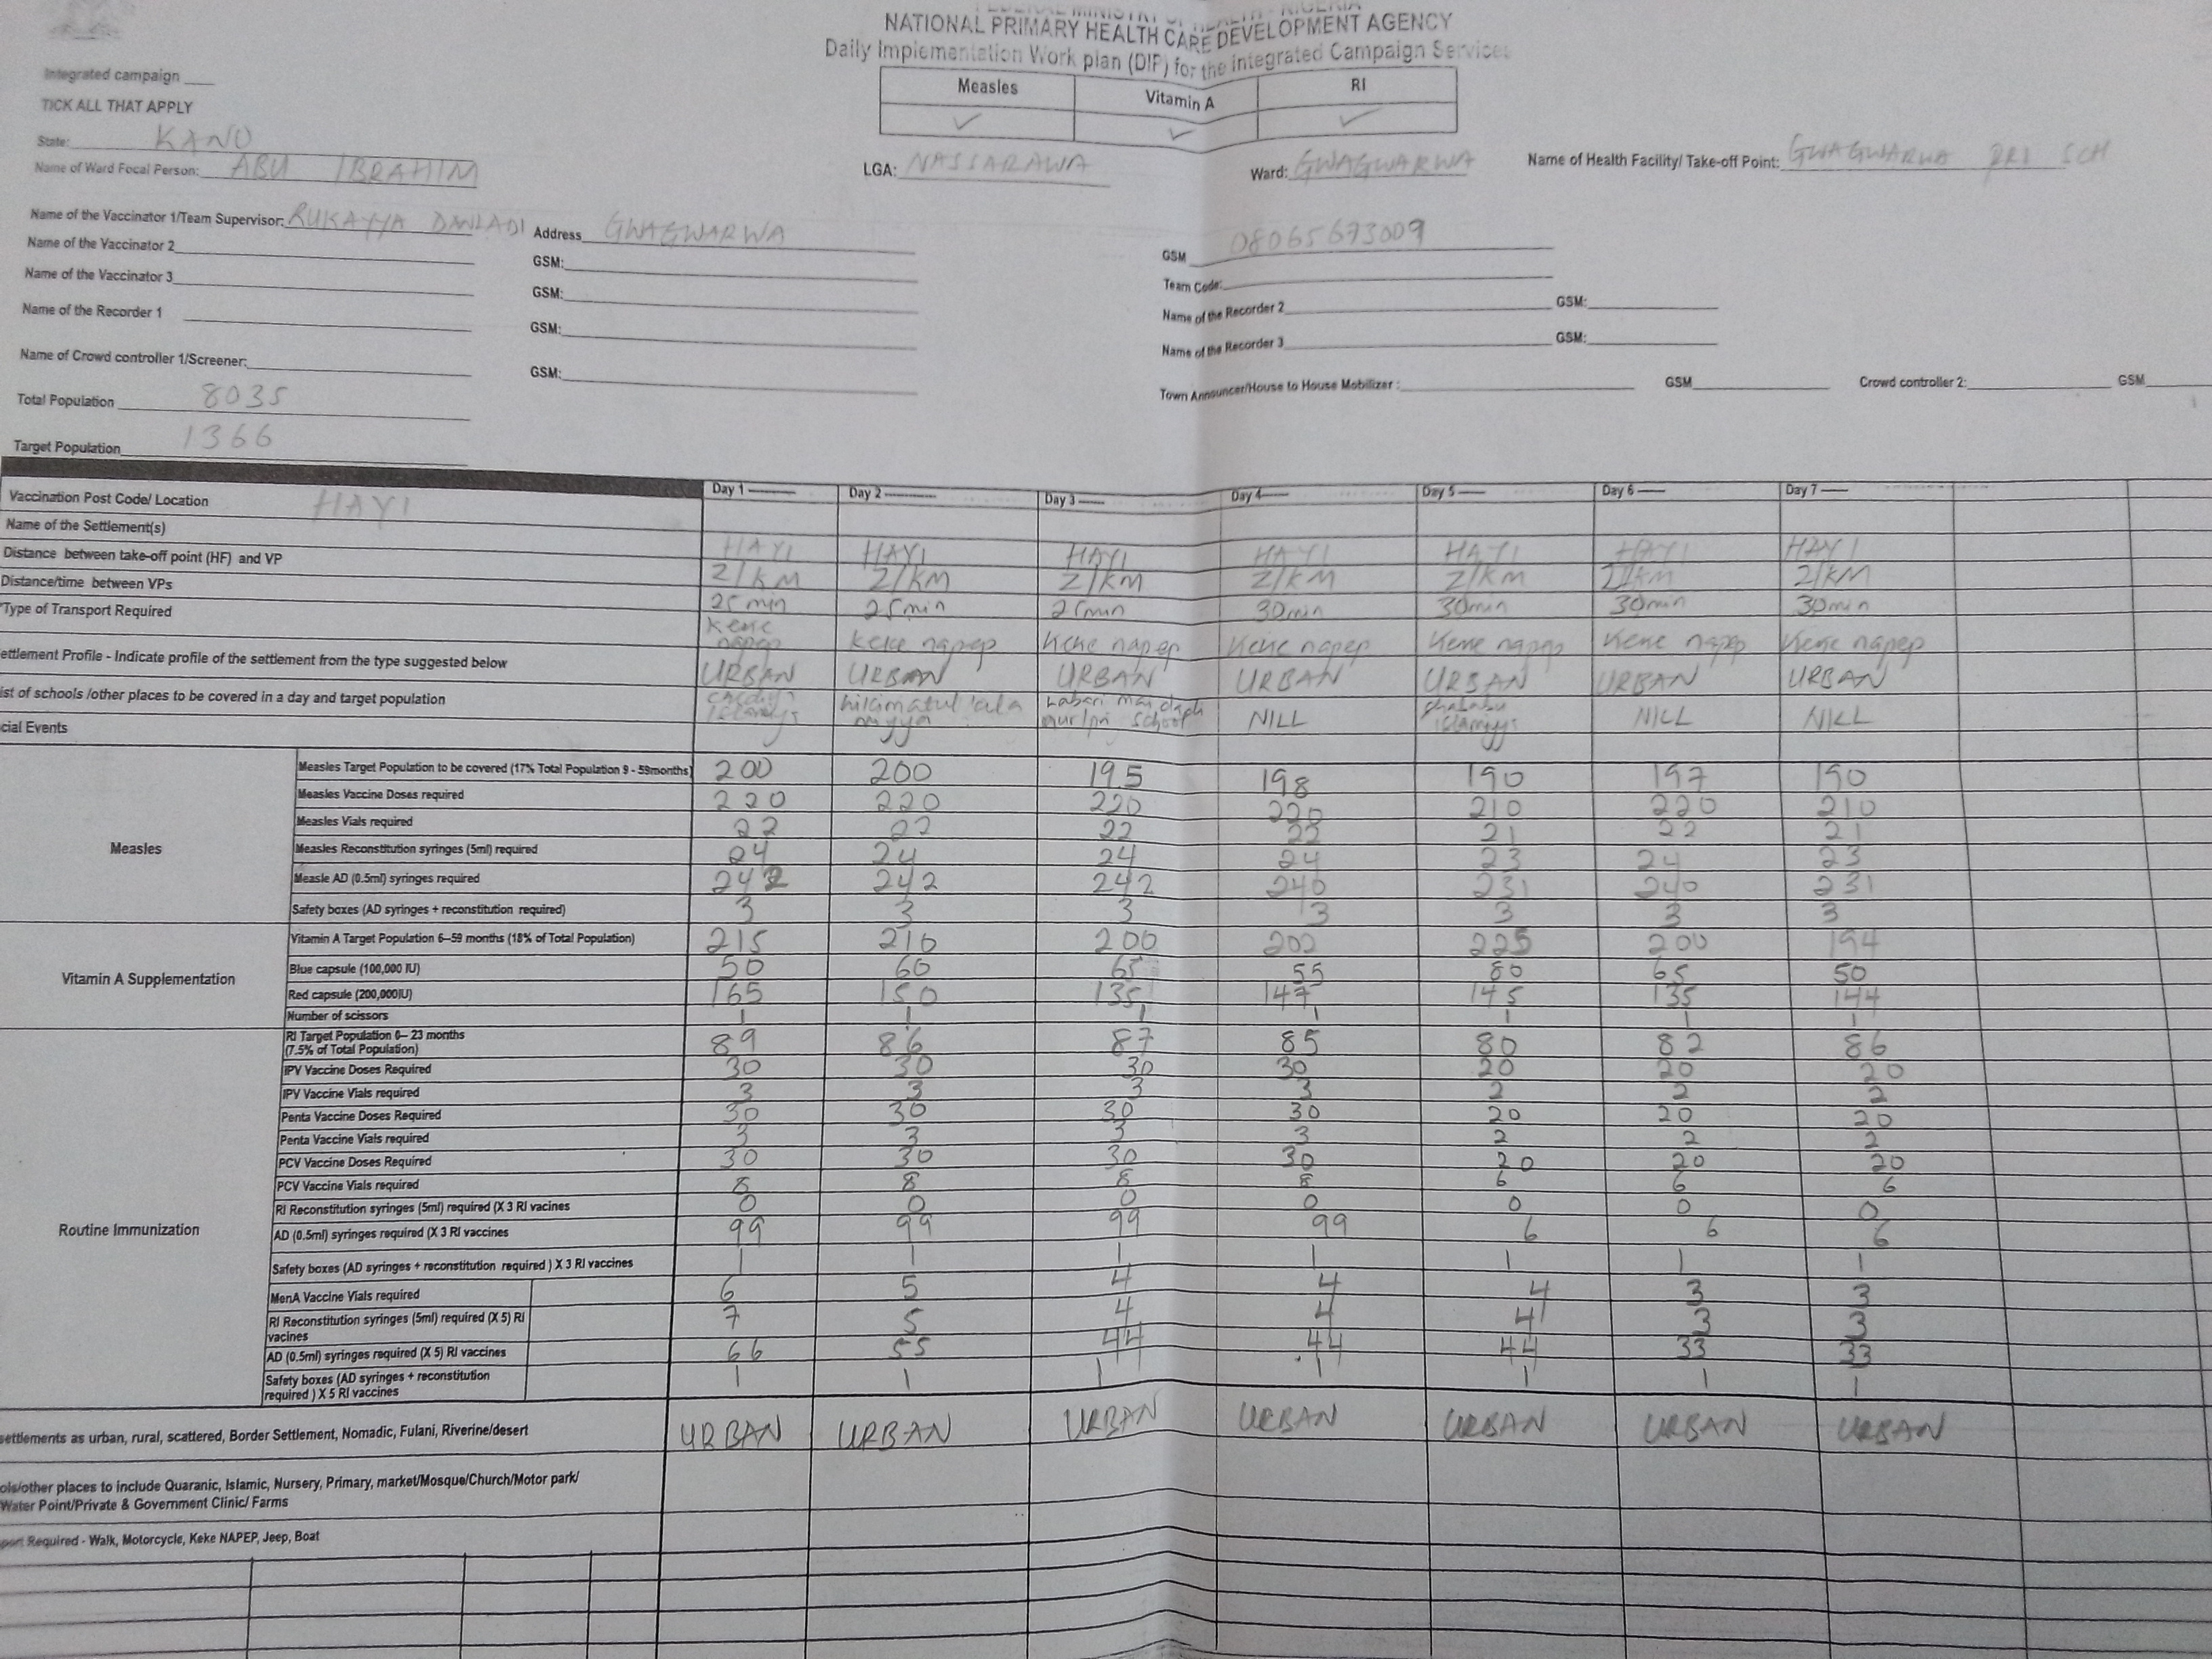 FEDERAL MINISTRY OF HEALTH - NIGERIA
NATIONAL PRIMARY HEALTH CARE DEVELOPMENT AGENCY
Daily Implementation Work plan (DIP) for the integrated Campaign Services
Integrated campaign
TICK ALL THAT APPLY
Measles Vitamin A RI
✓ ✓ ✓
State: KANO
Name of Ward Focal Person: ABU IBRAHIM LGA: NASSARAWA Ward: GWAGWARWA Name of Health Facility/ Take-off Point: GWAGWARWA PRI SCH
Name of the Vaccinator 1/Team Supervisor: RUKAYYA DANLADI Address GWAGWARWA GSM 08065673009
Name of the Vaccinator 2 GSM: Team Code:
Name of the Vaccinator 3 GSM: Name of the Recorder 2 GSM:
Name of the Recorder 1 GSM: Name of the Recorder 3 GSM:
Name of Crowd controller 1/Screener: GSM: Town Announcer/House to House Mobilizer : GSM Crowd controller 2: GSM
Total Population 8035
Target Population 1366
Vaccination Post Code/ Location HAYI Day 1 Day 2 Day 3 Day 4 Day 5 Day 6 Day 7
Name of the Settlement(s)
Distance between take-off point (HF) and VP HAYI HAYI HAYI HAYI HAYI HAYI HAYI
Distance/time between VPs 2/KM 2/KM 2/KM 2/KM 2/KM 2/KM 2/KM
*Type of Transport Required 25min 25min 25min 30min 30min 30min 30min
Keke napep Keke napep Keke napep Keke napep Keke napep Keke napep Keke napep
ettlement Profile - Indicate profile of the settlement from the type suggested below URBAN URBAN URBAN URBAN URBAN URBAN URBAN
ist of schools /other places to be covered in a day and target population NILL NILL NILL
cial Events
Measles
Measles Target Population to be covered (17% Total Population 9 - 59months) 200 200 195 198 190 197 190
Measles Vaccine Doses required 220 220 220 220 210 220 210
Measles Vials required 22 22 22 22 21 22 21
Measles Reconstitution syringes (5ml) required 24 24 24 24 23 24 23
Measle AD (0.5ml) syringes required 242 242 242 240 231 240 231
Safety boxes (AD syringes + reconstitution required) 3 3 3 3 3 3 3
Vitamin A Supplementation
Vitamin A Target Population 6–59 months (18% of Total Population) 215 210 200 202 225 200 194
Blue capsule (100,000 IU) 50 60 65 55 80 65 50
Red capsule (200,000IU) 165 150 135 147 145 135 144
Number of scissors 1 1 1 1 1 1 1
Routine Immunization
RI Target Population 0– 23 months
(7.5% of Total Population) 89 86 87 85 80 82 86
IPV Vaccine Doses Required 30 30 30 30 20 20 20
IPV Vaccine Vials required 3 3 3 3 2 2 2
Penta Vaccine Doses Required 30 30 30 30 20 20 20
Penta Vaccine Vials required 3 3 3 3 2 2 2
PCV Vaccine Doses Required 30 30 30 30 20 20 20
PCV Vaccine Vials required 8 8 8 8 6 6 6
RI Reconstitution syringes (5ml) required (X 3 RI vacines 0 0 0 0 0 0 0
AD (0.5ml) syringes required (X 3 RI vaccines 99 99 99 99 6 6 6
Safety boxes (AD syringes + reconstitution required ) X 3 RI vaccines 1 1 1 1 1 1 1
MenA Vaccine Vials required 6 5 4 4 4 3 3
RI Reconstitution syringes (5ml) required (X 5) RI
vacines 7 5 4 4 4 3 3
AD (0.5ml) syringes required (X 5) RI vaccines 66 55 44 44 44 33 33
Safety boxes (AD syringes + reconstitution
required ) X 5 RI vaccines 1 1 1 1 1 1 1
settlements as urban, rural, scattered, Border Settlement, Nomadic, Fulani, Riverine/desert URBAN URBAN URBAN URBAN URBAN URBAN URBAN
ols/other places to include Quaranic, Islamic, Nursery, Primary, market/Mosque/Church/Motor park/
Water Point/Private & Government Clinic/ Farms
port Required - Walk, Motorcycle, Keke NAPEP, Jeep, Boat